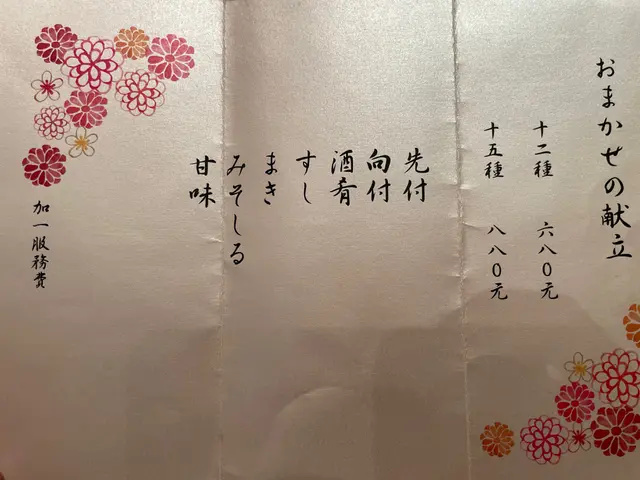 おまかせの献立
十二種 六八0元
十五種 八八0元
先付
向付
酒肴
すし
まき
みそしる
甘味
加一服務費